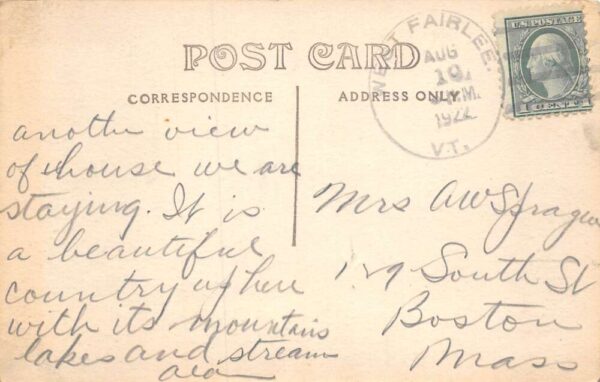 POST CARD
CORRESPONDENCE
ADDRESS ONLY
WEST FAIRLEE.
AUG
10
M.
1922
VT.
U.S. POSTAGE
1 CENT 1
another view
of house we are
staying. It is
a beautiful
country up here
with its mountains
lakes and streams
Mrs A W Sprague
129 South St
Boston
Mass